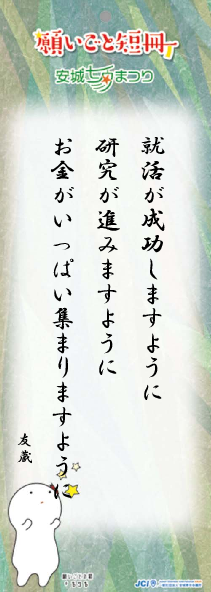 願いごと短冊
安城七夕まつり
就活が成功しますように
研究が進みますように
お金がいっぱい集まりますように
友蔵
JCI